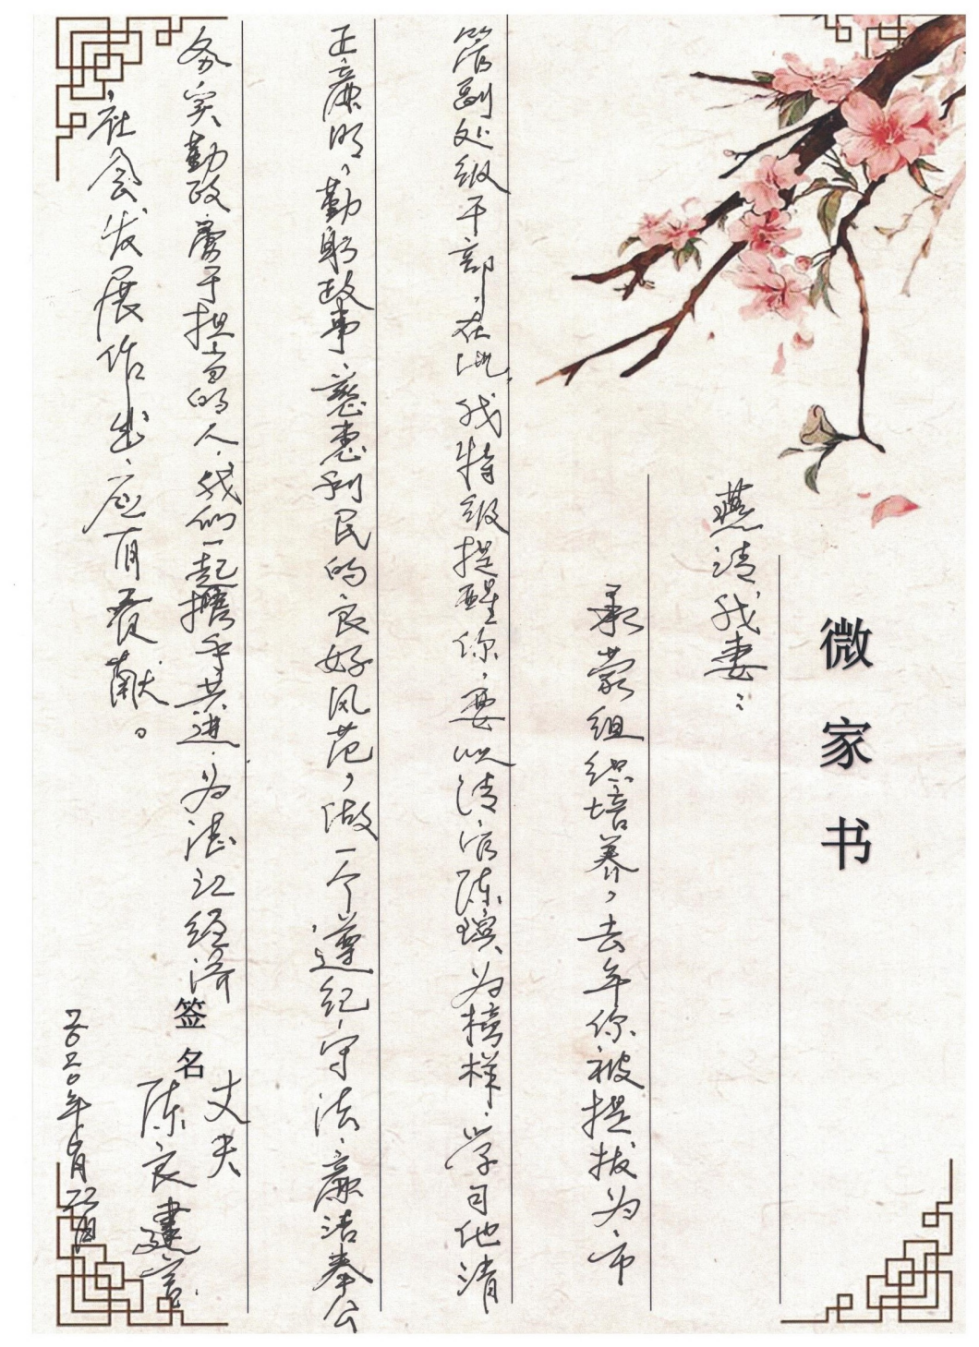 微家书
燕清我妻：
承蒙组织培养，去年你被提拔为市
管副处级干部，在此，我特级提醒你，要以清官陈瑸为榜样，学习他清
正廉明，勤躬政事、惠利民的良好风范，做一个遵纪守法、廉洁奉公
务实勤政、勇于担当的人，我们一起携手共进，为湛江经济
社会发展作出应有贡献。
签名
丈夫
陈良建
二0二0年 月22日